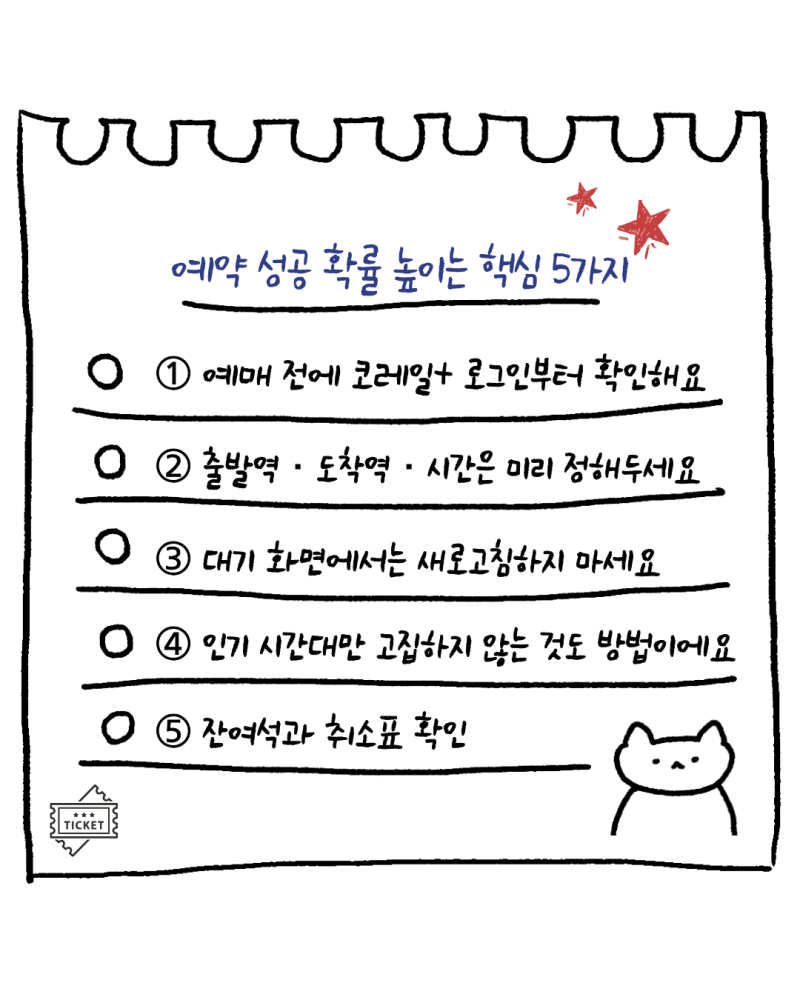 예약 성공 확률 높이는 핵심 5가지
① 예매 전에 코레일+ 로그인부터 확인해요
② 출발역 · 도착역 · 시간은 미리 정해두세요
③ 대기 화면에서는 새로고침하지 마세요
④ 인기 시간대만 고집하지 않는 것도 방법이에요
⑤ 잔여석과 취소표 확인
TICKET